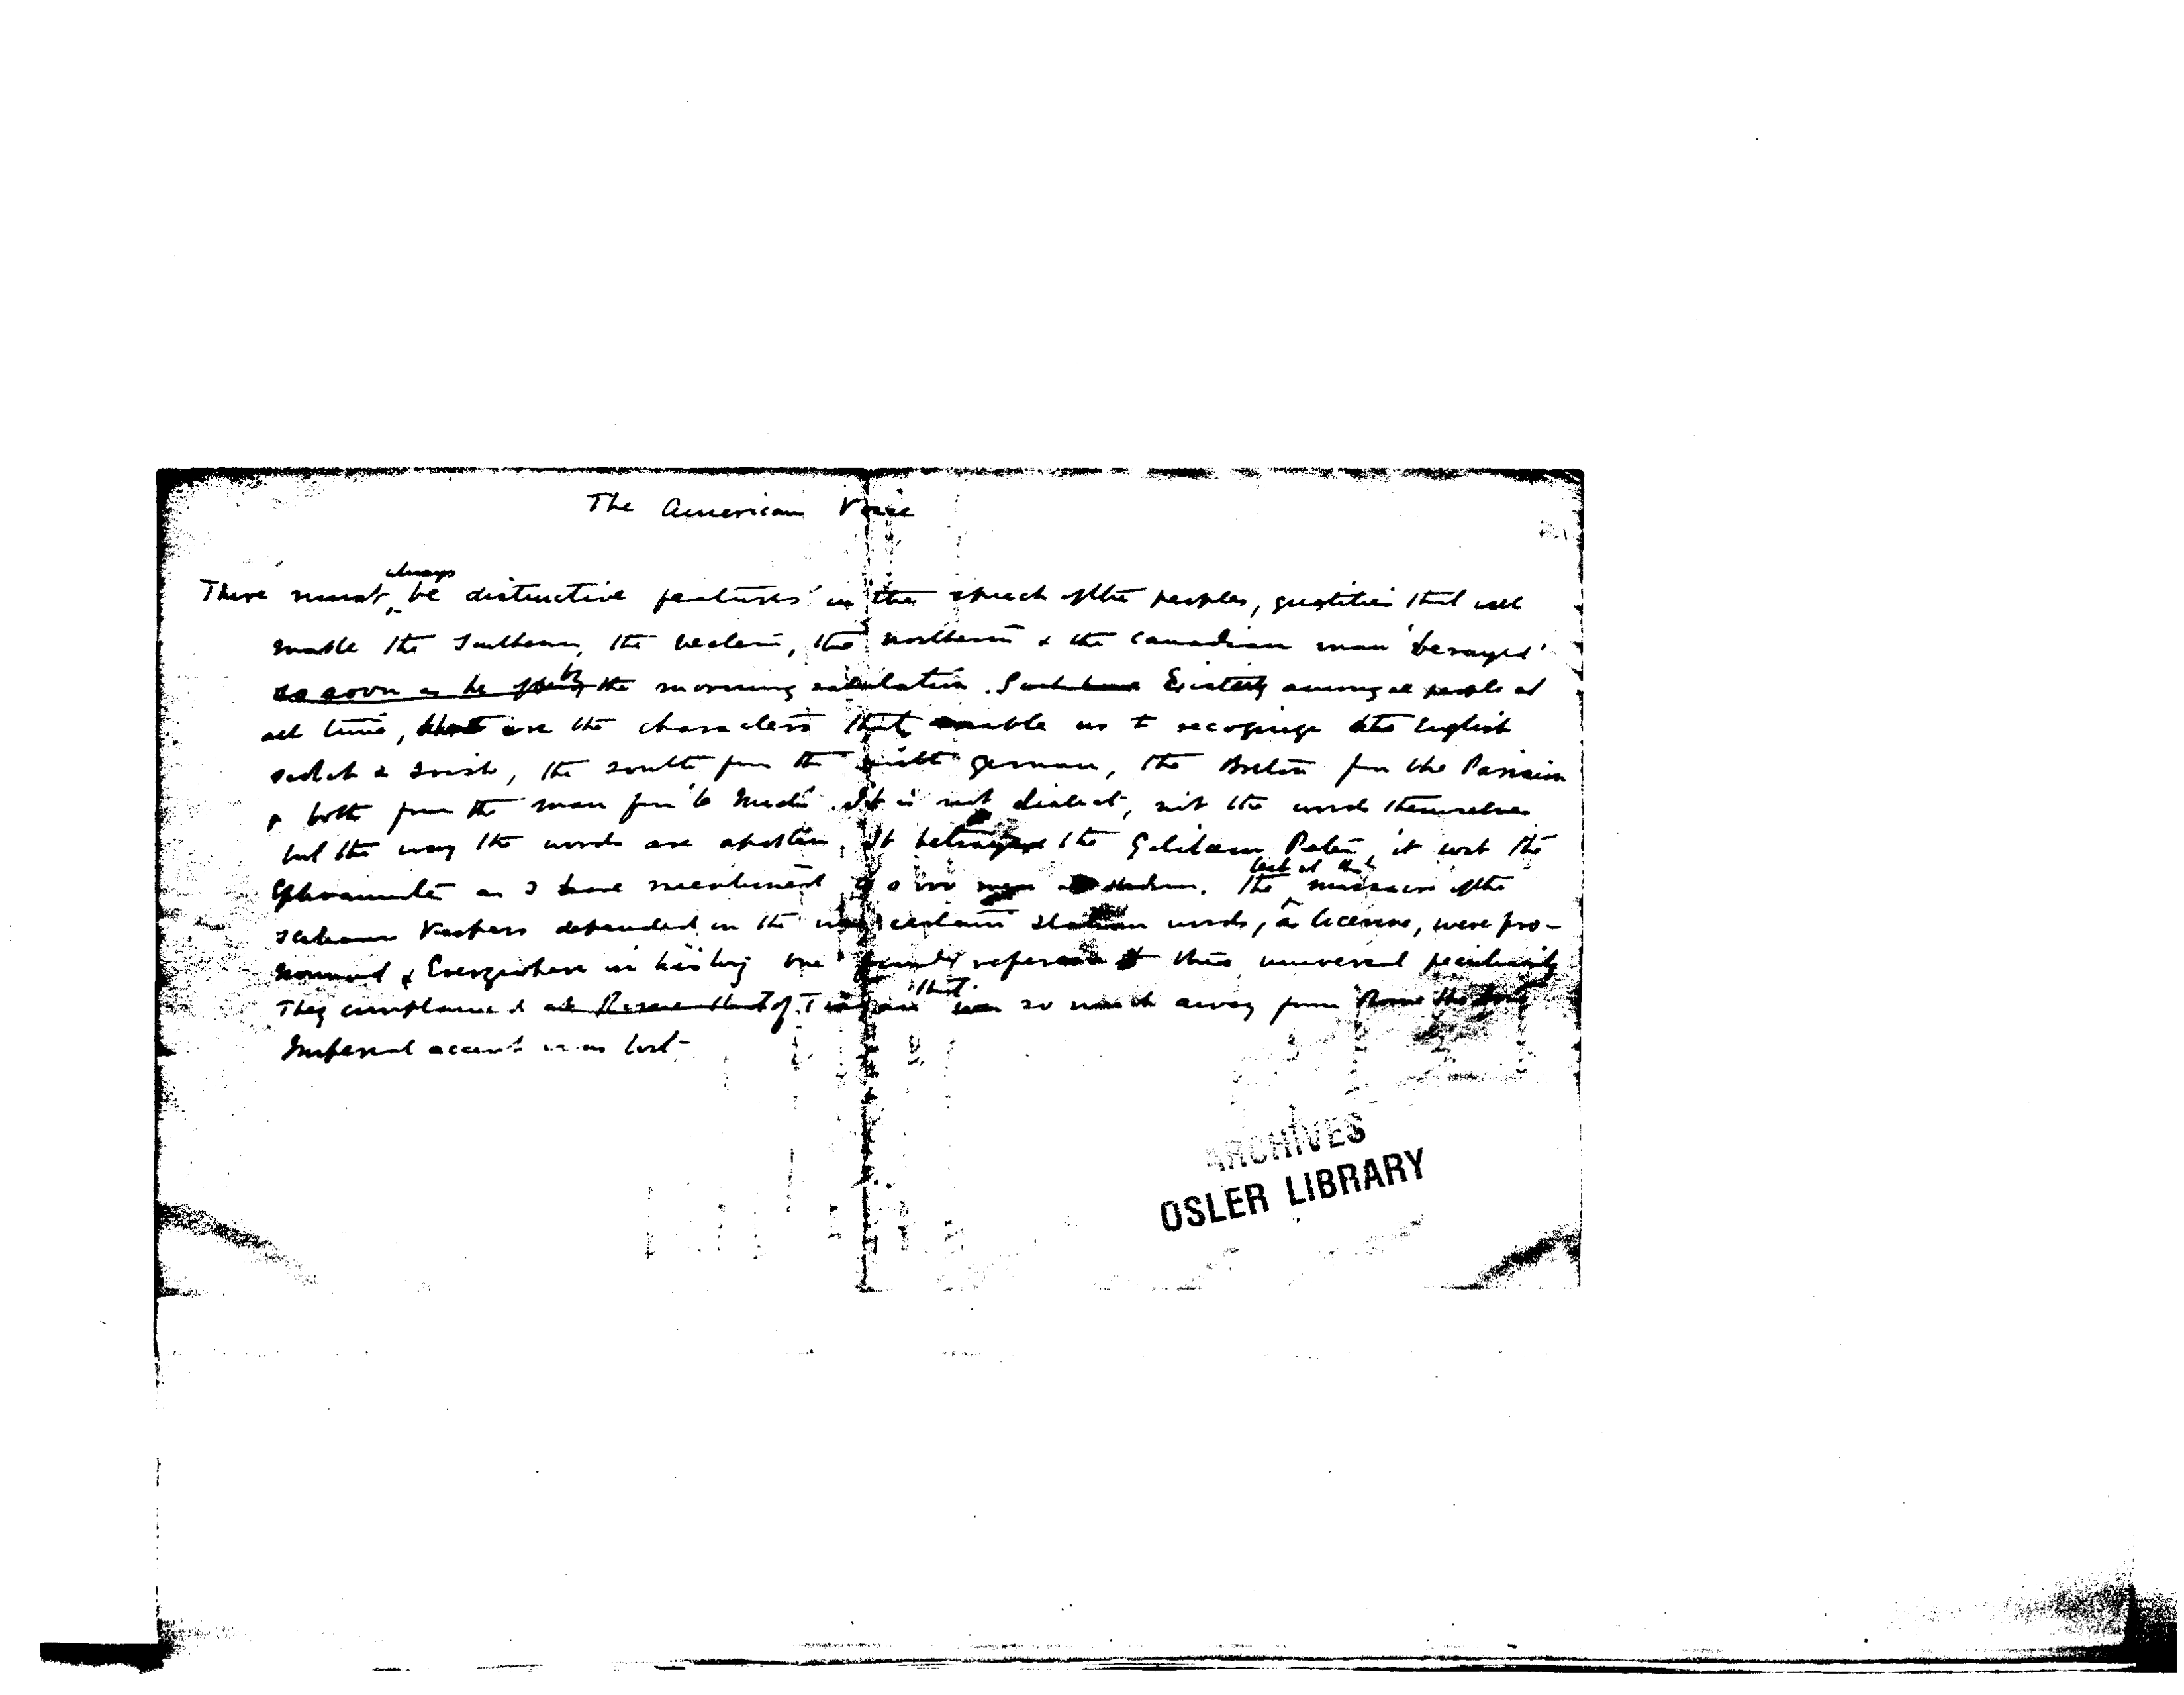 The American Voice
There must always be distinctive features in the speech of the peoples, qualities that will
enable the Southern, the Western, the northern & the Canadian man 'berayed'
as soon as he by the morning salutation. Existing among all people at
all time, are the characters that enable us to recognize the English
Scotch & Irish, the south from the north German, the Breton from the Parisian
& both from the man from the Midi. It is not dialect, not the words themselves
but the way the words are spoken. It betrayed the Galilaean Peter, it cost the
Ephraimite as I have mentioned men. The last at the massacre of the
Sicilian Vespers depended on the way certain Italian words, as were pro-
nounced & Everywhere in history one finds reference to this universal peculiarity
They complained of that was so much away from Rome the true
Imperial accent was lost-
ARCHIVES
OSLER LIBRARY